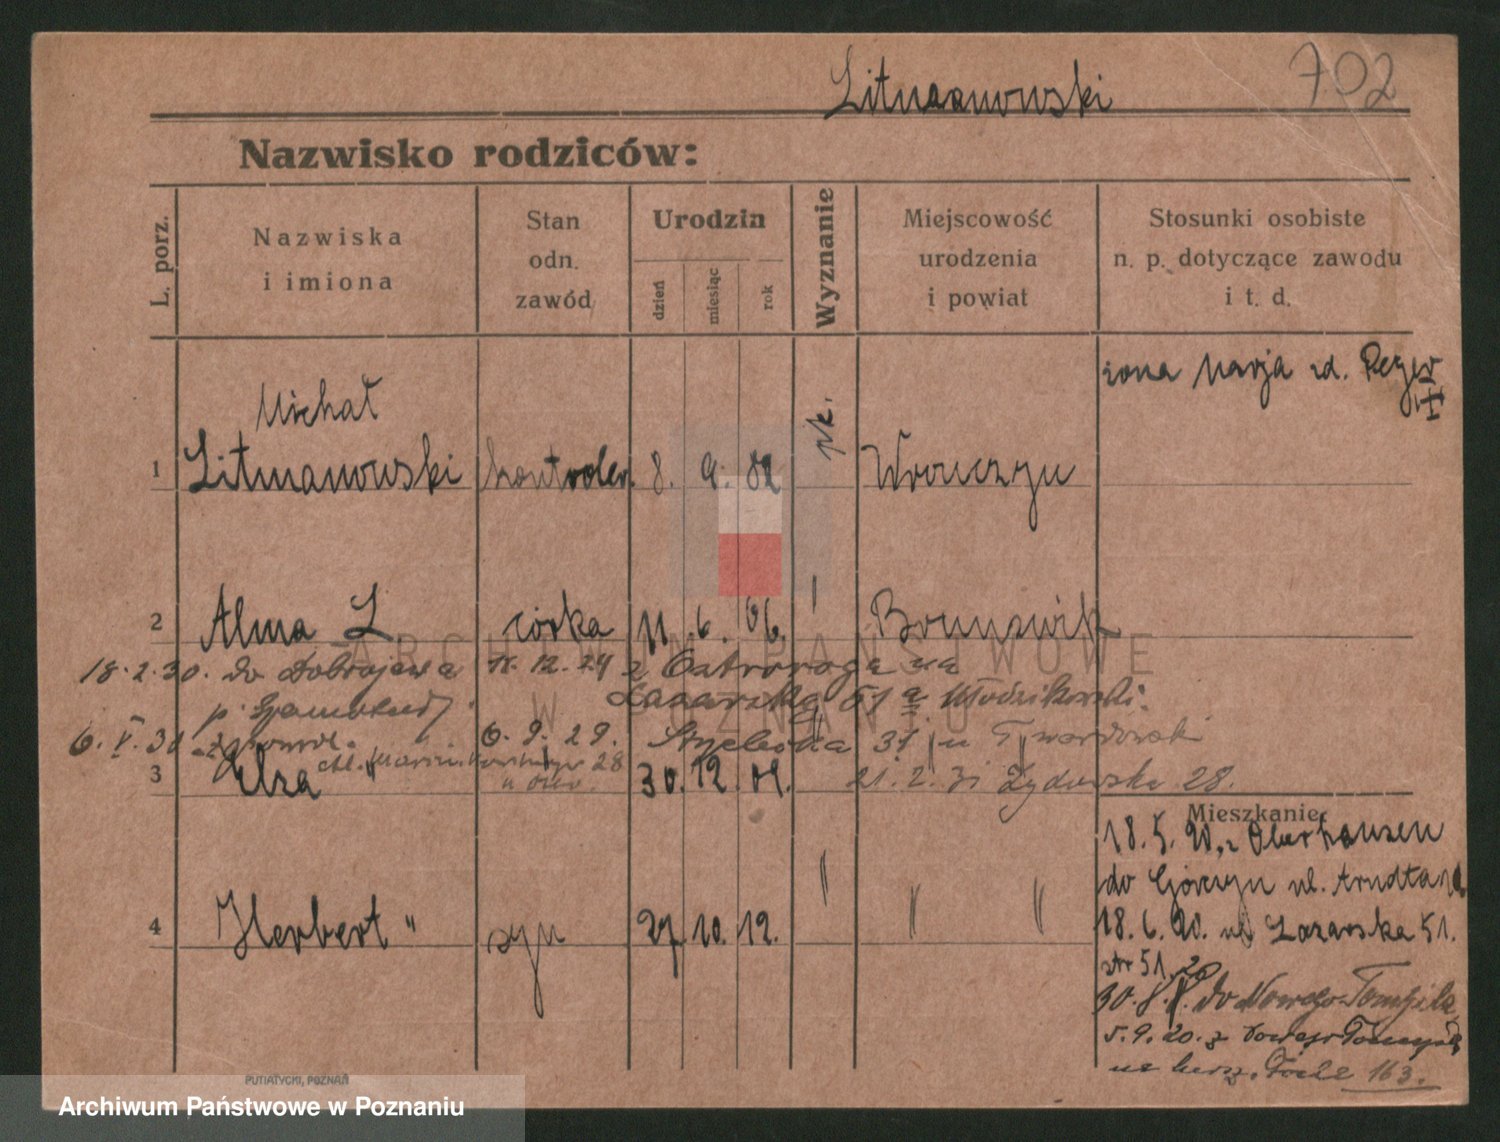 Litmanowski 702
Nazwisko rodziców:
L. porz.
Nazwiska
i imiona
Stan
odn.
zawód
Urodzin
dzień
miesiąc
rok
Wyznanie
Miejscowość
urodzenia
i powiat
Stosunki osobiste
n. p. dotyczące zawodu
i t. d.
żona Marja zd.
Michał
1 Litmanowski kontroler. 8. 9. 82 rk. Wronczyn
2 Alma L córka 11. 6. 06.
18.2.30. do Dobrojewa 11.12.24 z Ostroroga na
p. Łazarska 51 a Włodzikowski.
6. V. 30 6. 9. 29. 31 u Twardowski
28
3 Elza " 30. 12. 09. 21. 2. 31 Żydowska 28.
Mieszkanie
18. 5. 20, z Oberhausen
do Górczyn ul. Arndta
4 Herbert " syn 27. 10. 12. " " "
18. 6. 20. ul Łazarska 51.
str 51. 20
30. 8. do Nowego-Tomyśla
5. 9. 20. z Nowego Tomyśla
163.
ARCHIWUM PAŃSTWOWE
W POZNANIU
PUTIATYCKI, POZNAŃ
Archiwum Państwowe w Poznaniu